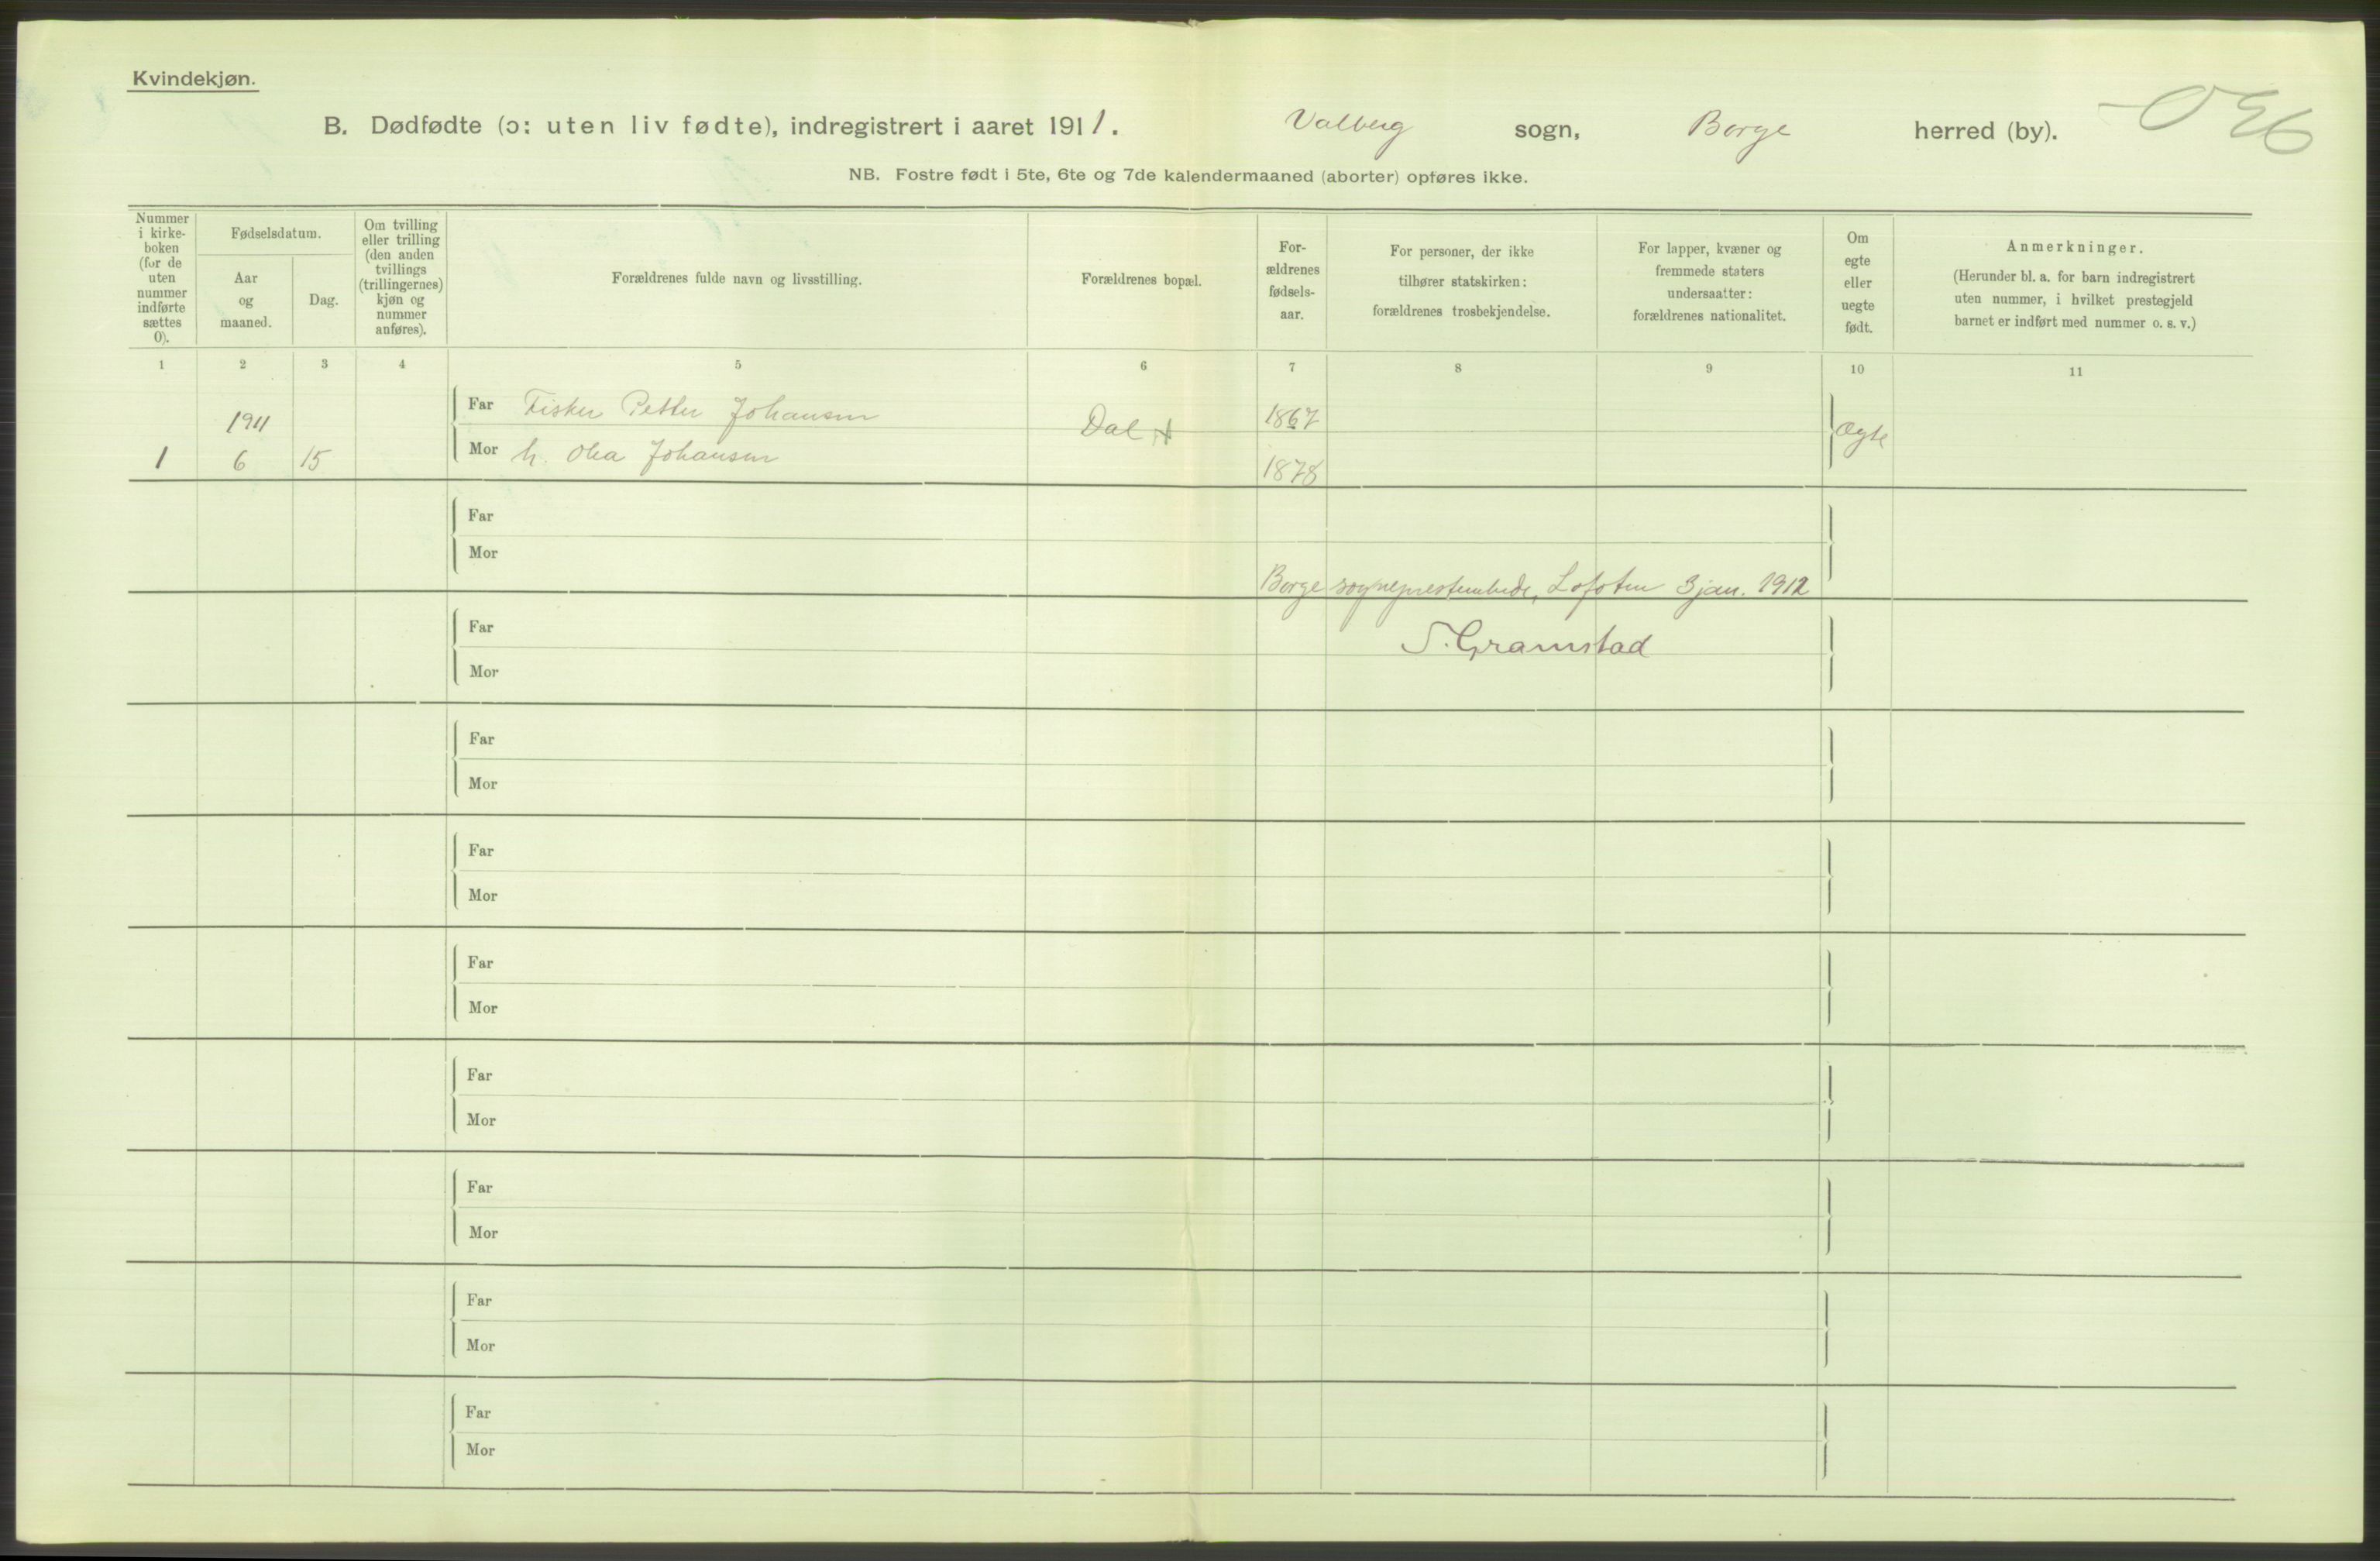 Kvindekjøn.
B. Dødfødte (ɔ: uten liv fødte), indregistrert i aaret 1911. Valberg sogn, Borge herred (by).
NB. Fostre født i 5te, 6te og 7de kalendermaaned (aborter) opføres ikke.
Nummer i kirke-boken (for de uten nummer indførte sættes 0).
Fødselsdatum.
Aar og maaned.
Dag.
Om tvilling eller trilling (den anden tvillings (trillingernes) kjøn og nummer anføres).
Forældrenes fulde navn og livsstilling.
Forældrenes bopæl.
For-ældrenes fødsels-aar.
For personer, der ikke tilhører statskirken: forældrenes trosbekjendelse.
For lapper, kvæner og fremmede staters undersaatter: forældrenes nationalitet.
Om egte eller uegte født.
Anmerkninger.
(Herunder bl. a. for barn indregistrert uten nummer, i hvilket prestegjeld barnet er indført med nummer o. s. v.)
1 2 3 4 5 6 7 8 9 10 11
1911
Far Fisker Petter Johansen Dal 1867 Ægte
1 6 15 Mor h. Johansen 1878
Far
Mor
Borge sogneprestembede, Lofoten 3 jan. 1912
Far
S. Gramstad
Mor
Far
Mor
Far
Mor
Far
Mor
Far
Mor
Far
Mor
Far
Mor
Far
Mor